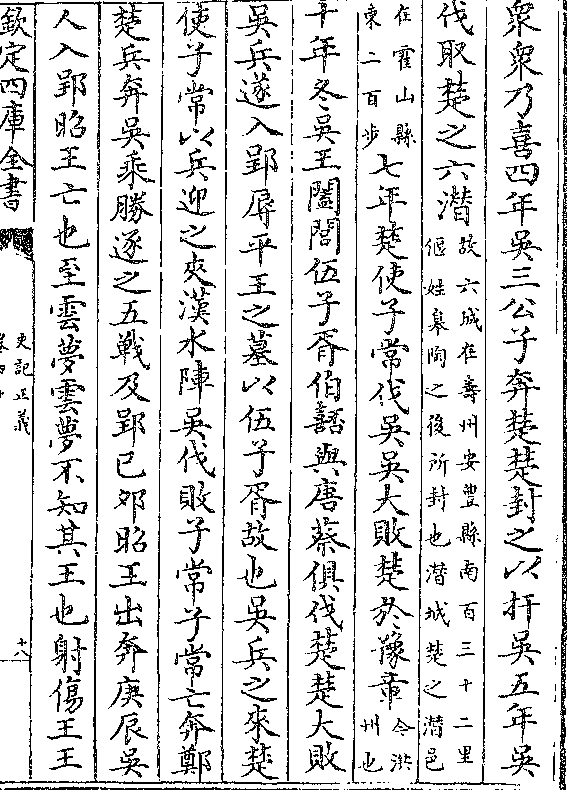 衆衆乃喜四年吳三公子奔楚楚封之以扞吳五年吳
伐取楚之六潛
故六城在壽州安豐縣南百三十二里
偃姓臯陶之後所封也潛城楚之潛邑
在霍山縣
東二百步
七年楚使子常伐吳吳大敗楚於豫章
今洪
州也
十年冬吳王闔閭伍子胥伯嚭與唐蔡俱伐楚楚大敗
吳兵遂入郢辱平王之墓以伍子胥故也吳兵之來楚
使子常以兵迎之夾漢水陣吳伐敗子常子常亡奔鄭
楚兵奔吳乘勝逐之五戰及郢已卯昭王出奔庚辰吳
人入郢昭王亡也至雲夢雲夢不知其王也射傷王王
欽定四庫全書
史記正義
十八